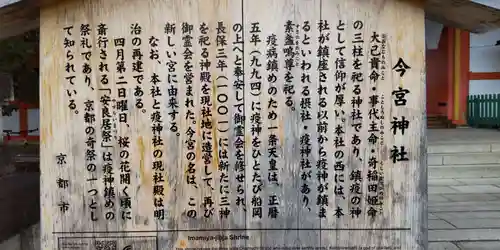 今宮神社
大己貴命・事代主命・奇稲田姫命
の三柱を祀る神社であり、鎮疫の神
として信仰が厚い。本社の西には、本
社が鎮座される以前から疫神が鎮ま
るといわれる摂社・疫神社があり、
素盞鳴尊を祀る。
疫病鎮めのため一条天皇は、正暦
五年（九九四）に疫神をひとたび船岡
の上へと奉安して御霊会を修せられ、
長保三年（一〇〇一）には新たに三神
を祀る神殿を現社地に造営して、再び
御霊会を営まれた。今宮の名は、この
新しい宮に由来する。
なお、本社と疫神社の現社殿は明
治の再建である。
四月第二日曜日、桜の花開く頃に
斎行される「安良居祭」は疫神鎮めの
祭礼であり、京都の奇祭の一つとし
て知られている。
京都市
Imamiya-jinja Shrine